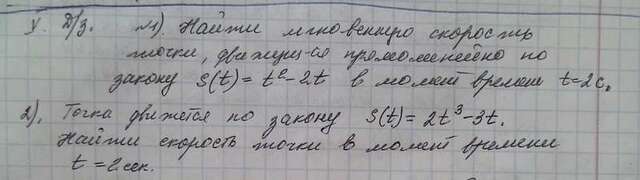 V. Д/з. №1). Найти мгновенную скорость
точки, движущ-ся прямолинейно по
закону S(t) = t² - 2t в момент времени t = 2 с.
2). Точка движется по закону S(t) = 2t³ - 3t.
Найти скорость точки в момент времени
t = 2 сек.